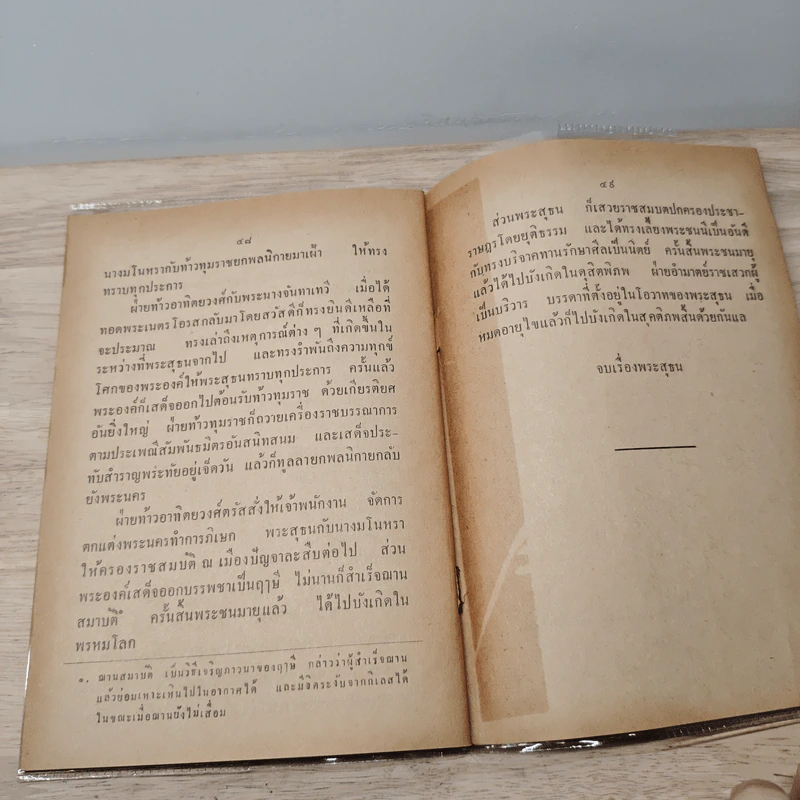 ๔๘
นางมโนหรากับท้าวทุมราชยกพลนิกายมาเฝ้า ให้ทรง
ทราบทุกประการ
ฝ่ายท้าวอาทิตยวงศ์กับพระนางจันทาเทวี เมื่อได้
ทอดพระเนตรโอรสกลับมาโดยสวัสดีก็ทรงยินดีเหลือที่
จะประมาณ ทรงเล่าถึงเหตุการณ์ต่าง ๆ ที่เกิดขึ้นใน
ระหว่างที่พระสุธนจากไป และทรงรำพันถึงความทุกข์
โศกของพระองค์ให้พระสุธนทราบทุกประการ ครั้นแล้ว
พระองค์ก็เสด็จออกไปต้อนรับท้าวทุมราช ด้วยเกียรติยศ
อันยิ่งใหญ่ ฝ่ายท้าวทุมราชก็ถวายเครื่องราชบรรณาการ
ตามประเพณีสัมพันธมิตรอันสนิทสนม และเสด็จประ–
ทับสำราญพระทัยอยู่เจ็ดวัน แล้วก็ทูลลายกพลนิกายกลับ
ยังพระนคร
ฝ่ายท้าวอาทิตยวงศ์ตรัสสั่งให้เจ้าพนักงาน จัดการ
ตกแต่งพระนครทำการภิเษก พระสุธนกับนางมโนหรา
ให้ครองราชสมบัติ ณ เมืองปัญจาละสืบต่อไป ส่วน
พระองค์เสด็จออกบรรพชาเป็นฤๅษี ไม่นานก็สำเร็จฌาน
สมาบัติ๑ ครั้นสิ้นพระชนมายุแล้ว ได้ไปบังเกิดใน
พรหมโลก
๑. ฌานสมาบัติ เป็นวิธีเจริญภาวนาของฤๅษี กล่าวว่าผู้สำเร็จฌาน
แล้วย่อมเหาะเหินไปในอากาศได้ และมีจิตระงับจากกิเลสได้
ในขณะเมื่อฌานยังไม่เสื่อม
๔๙
ส่วนพระสุธน ก็เสวยราชสมบัติปกครองประชา–
ราษฎรโดยยุติธรรม และได้ทรงเลี้ยงพระชนนีเป็นอันดี
กับทรงบริจาคทานรักษาศีลเป็นนิตย์ ครั้นสิ้นพระชนมายุ
แล้วได้ไปบังเกิดในดุสิตพิภพ ฝ่ายอำมาตย์ราชเสวกผู้
เป็นบริวาร บรรดาที่ตั้งอยู่ในโอวาทของพระสุธน เมื่อ
หมดอายุไขแล้วก็ไปบังเกิดในสุคติภพสิ้นด้วยกันแล
จบเรื่องพระสุธน